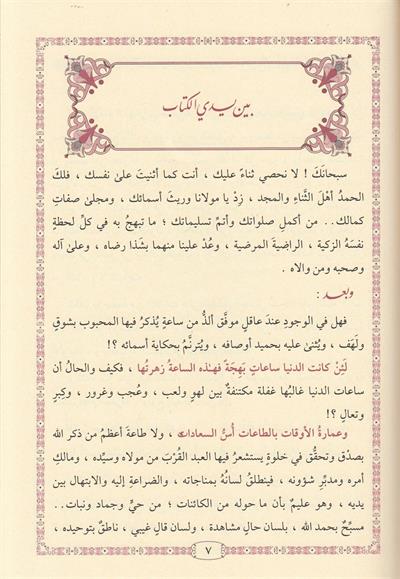 بين يدي الكتاب
سبحانَكَ ! لا نحصي ثناءً عليك ، أنت كما أثنيتَ علىٰ نفسك ، فلكَ
الحمدُ أهْلَ الثَّناءِ والمجد ، زِدْ يا مولانا وريثَ أسمائك ، ومجلىٰ صفاتِ
كمالك . . من أكملِ صلواتك وأتمِّ تسليماتك ؛ ما تبهجُ به في كلِّ لحظةٍ
نفسَهُ الزكية ، الراضيةَ المرضية ، وعُدْ علينا منهما بشَذا رضاه ، وعلىٰ آله
وصحبه ومن والاه .
وبعد :
فهل في الوجودِ عندَ عاقلٍ موفَّقٍ ألذُّ من ساعةٍ يُذكرُ فيها المحبوب بشوقٍ
ولَهَف ، ويُثنىٰ عليه بحميد أوصافه ، ويُترنَّمُ بحكاية أسمائه ؟!
لَئِنْ كانت الدنيا ساعاتِ بَهجَةٍ فهـٰذه الساعةُ زهرتُها ، فكيف والحالُ أن
ساعاتِ الدنيا غالبُها غفلة مكتنفةٌ بين لهوٍ ولعب ، وعُجب وغرور ، وكِبرٍ
وتعالٍ ؟!
وعمارةُ الأوقات بالطاعات أُسُّ السعادات ، ولا طاعةَ أعظمُ من ذكر الله
بصدْق وتحقُّق في خلوةٍ يستشعرُ فيها العبد القُرْبَ من مولاه وسيِّده ، ومالكِ
أمره ومدبِّرِ شؤونه ، فينطلقُ لسانُهُ بمناجاته ، والضراعةِ إليه والابتهال بين
يديه ، وهو عليمٌ بأن ما حوله من الكائنات ؛ من حيٍّ وجماد ونبات . .
مسبِّحٌ بحمد الله ، بلسان حالٍ مشاهدة ، ولسان قال غيبي ، ناطقٌ بتوحيده ،
٧